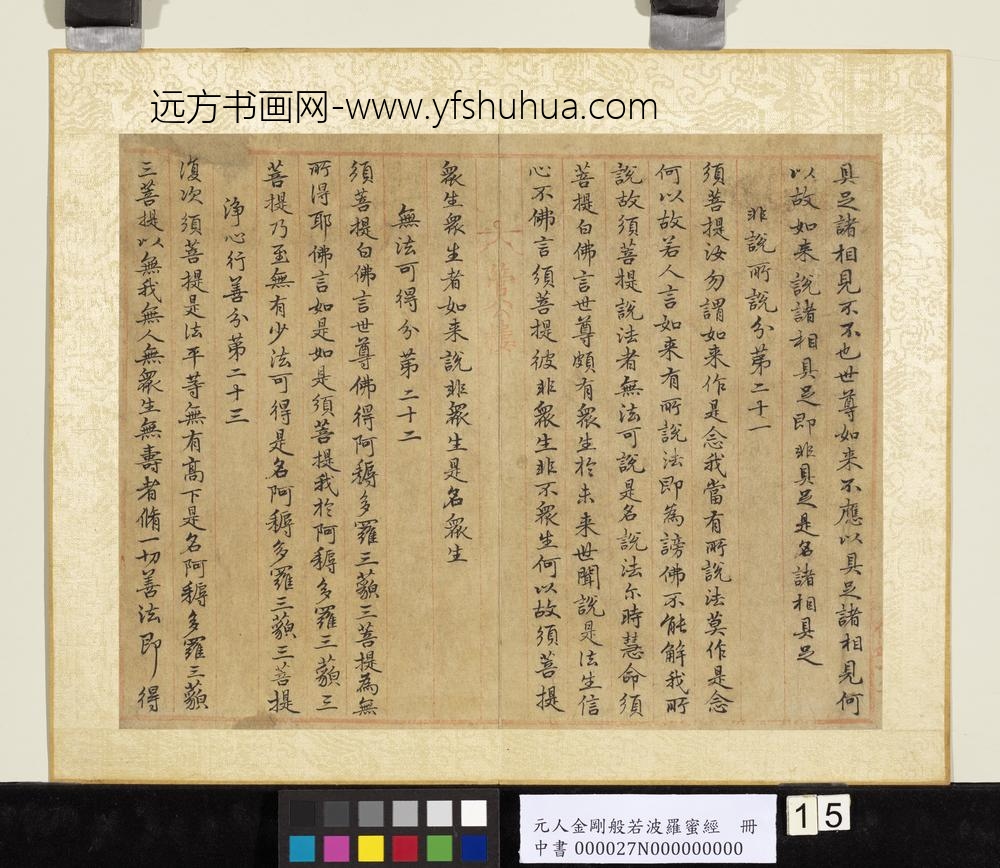 远方书画网-www.yfshuhua.com
具足諸相見不不也世尊如来不應以具足諸相見何
以故如来說諸相具足即非具足是名諸相具足
非說所說分第二十一
須菩提汝勿謂如来作是念我當有所說法莫作是念
何以故若人言如来有所說法即為謗佛不能解我所
說故須菩提說法者無法可說是名說法尓時慧命須
菩提白佛言世尊頗有衆生於未来世聞說是法生信
心不佛言須菩提彼非衆生非不衆生何以故須菩提
衆生衆生者如来說非衆生是名衆生
無法可得分第二十二
須菩提白佛言世尊佛得阿耨多羅三藐三菩提為無
所得耶佛言如是如是須菩提我於阿耨多羅三藐三
菩提乃至無有少法可得是名阿耨多羅三藐三菩提
淨心行善分第二十三
復次須菩提是法平等無有髙下是名阿耨多羅三藐
三菩提以無我無人無衆生無壽者脩一切善法即得
元人金剛般若波羅蜜經 冊
中書 000027N000000000
15